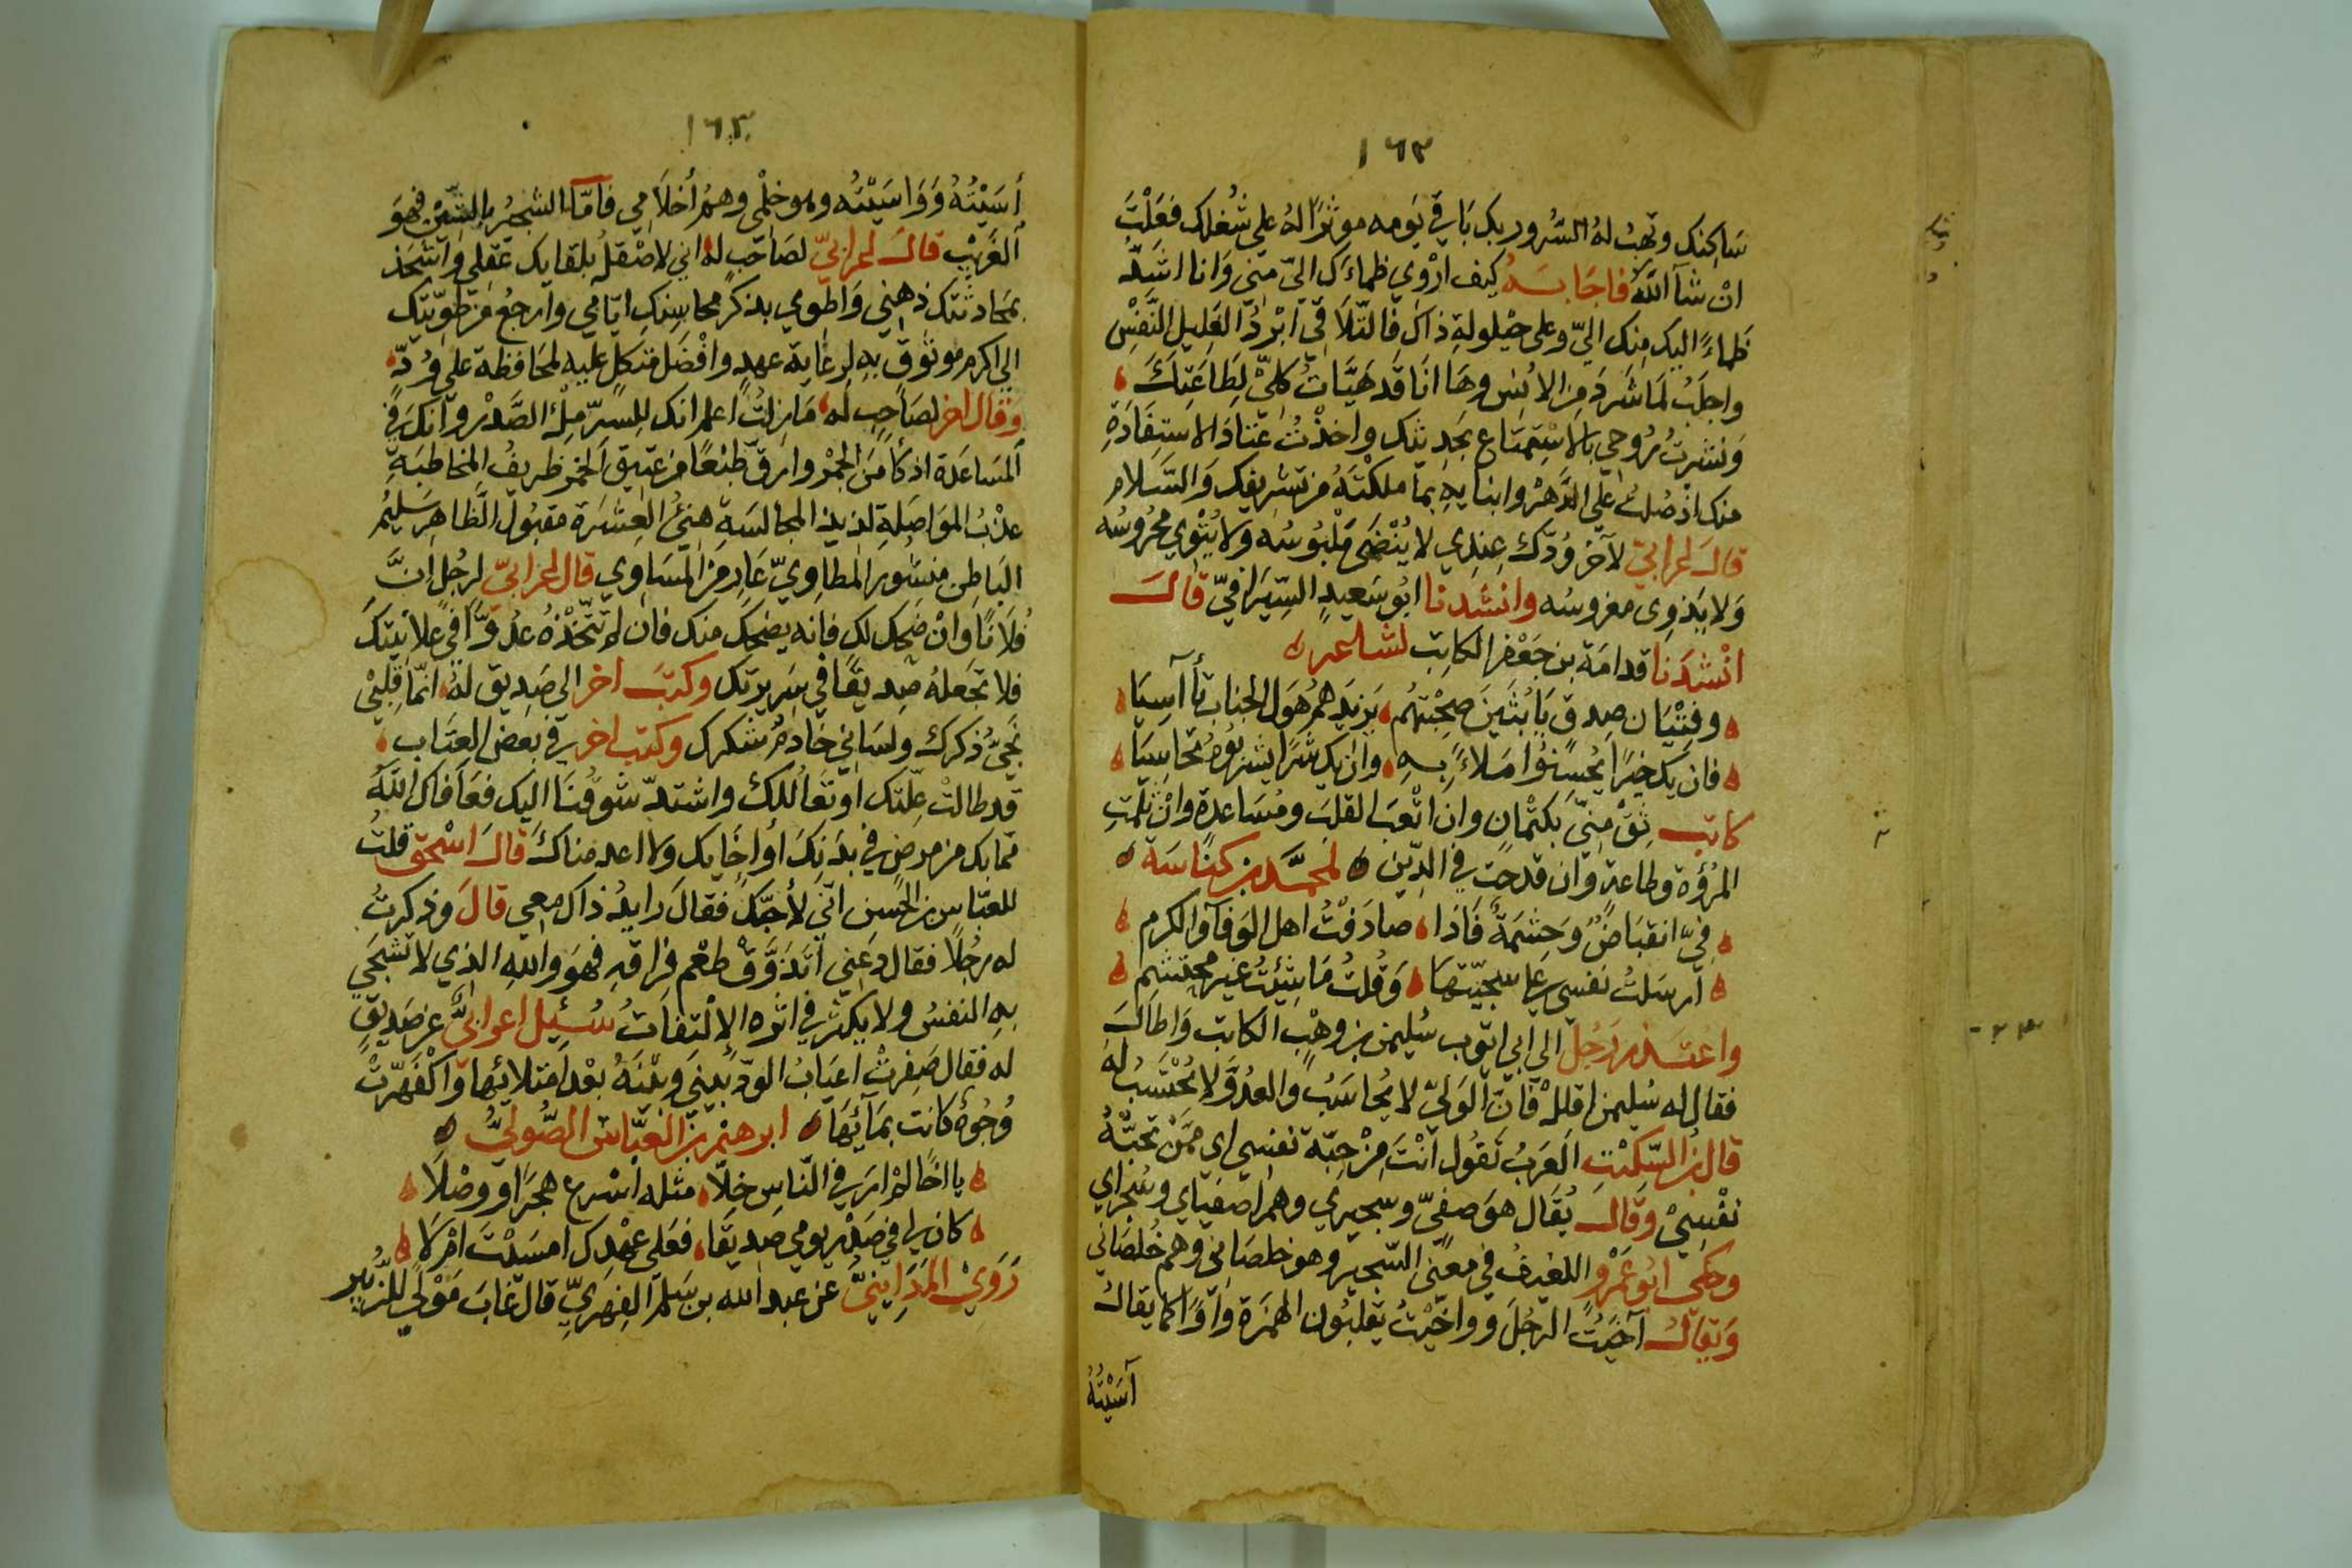 ١٦٢
ساكنك وتهب له السرور بك باقي يومه موثرًا له على شغلك فعلت
ان شآ الله فاجابه كيف اروي ظماءك اليّ مني وانا اشدّ
ظماءً اليك منك اليّ وعلى حيلولة ذاك فالتلاقي ابرد الغليل النفس
واجلب لما شرد من الانس وها انا قد هيّات كليّ لطاعتك
ونشرت روحي بالاستمتاع بحديثك واخذت عتاد الاستفادة
منك اذ صلت على الدهر وابنايه بما ملكته من تشريفك والسلام
قال اعرابيّ لآخر ودّك عندي لا ينضى ملبوسه ولا يثوي محروسه
ولا يذوى مغروسه وانشدنا ابو سعيد السيرافيّ قال
انشدنا قدامة بن جعفر الكاتب لشاعر
وفتيان صدق يا بثين صحبتهم يزيدهم هول الجناب تآسيا
فان يك خيرًا يحسنوا املاءً به وان يك شرًا يشربوه تحاسيا
كاتب ثق منّي بكتمان وان اتعب القلب ومساعدة وان ثلمت
المرؤة وطاعة وان قدحت في الدين لمحمد بن كناسة
فيّ انقباض وحشمة فاذا صادفت اهل الوفآ والكرم
ارسلت نفسي على سجيّتها وقلت ما شئت غير محتشم
واعتذر رجل الى ابي ايّوب سليمن بن وهب الكاتب واطال
فقال له سليمن اقلل فان الوليّ لا يحاسب والعدوّ لا يحتسب له
قال بن السكيت العرب تقول انت من حبّة نفسي اي ممن تحبّه
نفسي وقال يقال هو صفيّ وسجيري وهم اصفياي وسجراي
وحكى ابو عمرو اللفيف في معنى السجير وهو خلصاني وهم خلصاني
ويقال آخيت الرجل وواخيت يقلبون الهمزة واوًا كما يقال
آسيته
١٦٣
أسيته وواسيته وهو خلمي وهم أخلامي فامّا الشجير بالشين فهو
الغريب قال اعرابيّ لصاحب له اني لاصقل بلقايك عقلي واشحذ
بمحادثتك ذهني واطوي بذكر محاسنك ايّامي وارجع من طويّتك
الى اكرم موثوق به لرعاية عهد وافضل متكل عليه لمحافظة على ودّ
وقال اخر لصاحب له ما زلت اعلم انك للسرّ ملء الصدر وانك في
المساعدة اذكا من الجمر وارق طبعًا من عتيق الخمر ظريف المخاطبة
عذب المواصلة لذيذ المجالسة هنيّ العشرة مقبول الظاهر سليم
الباطن منشور المطاويّ عار من المساوي قال اعرابيّ لرجل ان
فلانًا وان ضحك لك فانه يضحك منك فان لم تتخذه عدوًّا في علانيتك
فلا تجعله صديقًا في سريرتك وكتب اخر الى صديق له انما قلبي
نجيّ ذكرك ولساني خادم شكرك وكتب اخر في بعض العتاب
قد طالت علّتك او تعاللك واشتدّ شوقنا اليك فعافاك الله
مما بك من مرض في بدنك أو اخايك ولا اعدمناك قال اسحق قلت
للعبّاس بن الحسن انّي لأحبّك فقال رايد ذاك معي قال وذكرت
له رجلًا فقال دعني اتذوّق طعم فراقه فهو والله الذي لا تشجى
به النفس ولا يكثر في اثره الالتفات سئيل اعرابيّ عن صديق
له فقال صفرت اعياب الودّ بيني وبينه بعد امتلائها واكفهرّت
وجوه كانت بمآئها ابرهيم بن العبّاس الصوليّ
يا اخًا لم ار في الناس خلّا مثله اسرع هجرًا ووصلًا
كان لي في صدر يومي صديقا فعلى عهدك امسيت ام لا
روي المدايني عن عبد الله بن سلم الفهريّ قال غاب مولى للزبير